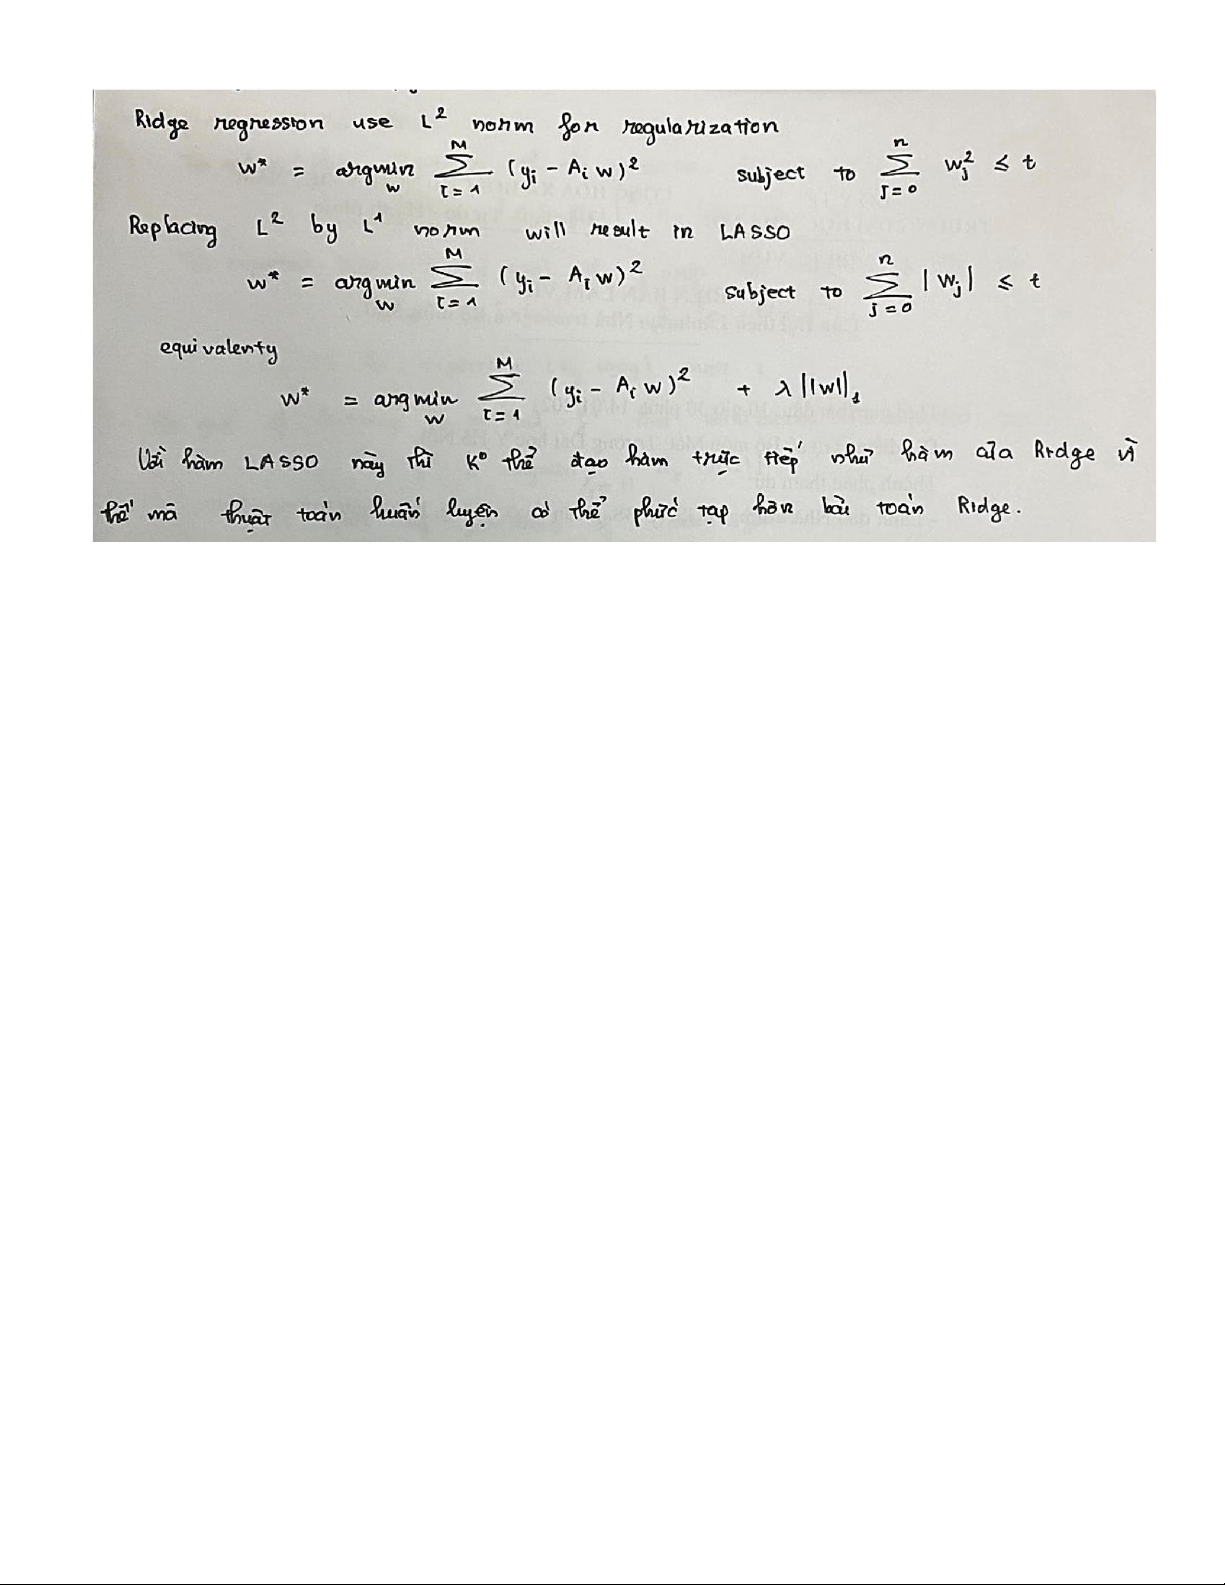 Ridge regression use L² norm for regularization
w* = argmin_w ∑_{i=1}^{M} (y_i - A_i w)² subject to ∑_{j=0}^{n} w_j² ≤ t
Replacing L² by L¹ norm will result in LASSO
w* = argmin_w ∑_{i=1}^{M} (y_i - A_i w)² subject to ∑_{j=0}^{n} |w_j| ≤ t
equivalenty
w* = argmin_w ∑_{i=1}^{M} (y_i - A_i w)² + λ||w||_1
Với hàm LASSO này thì K° thể đạo hàm trực tiếp như hàm của Ridge vì
thế mà thuật toán huấn luyện có thể phức tạp hơn bài toán Ridge.